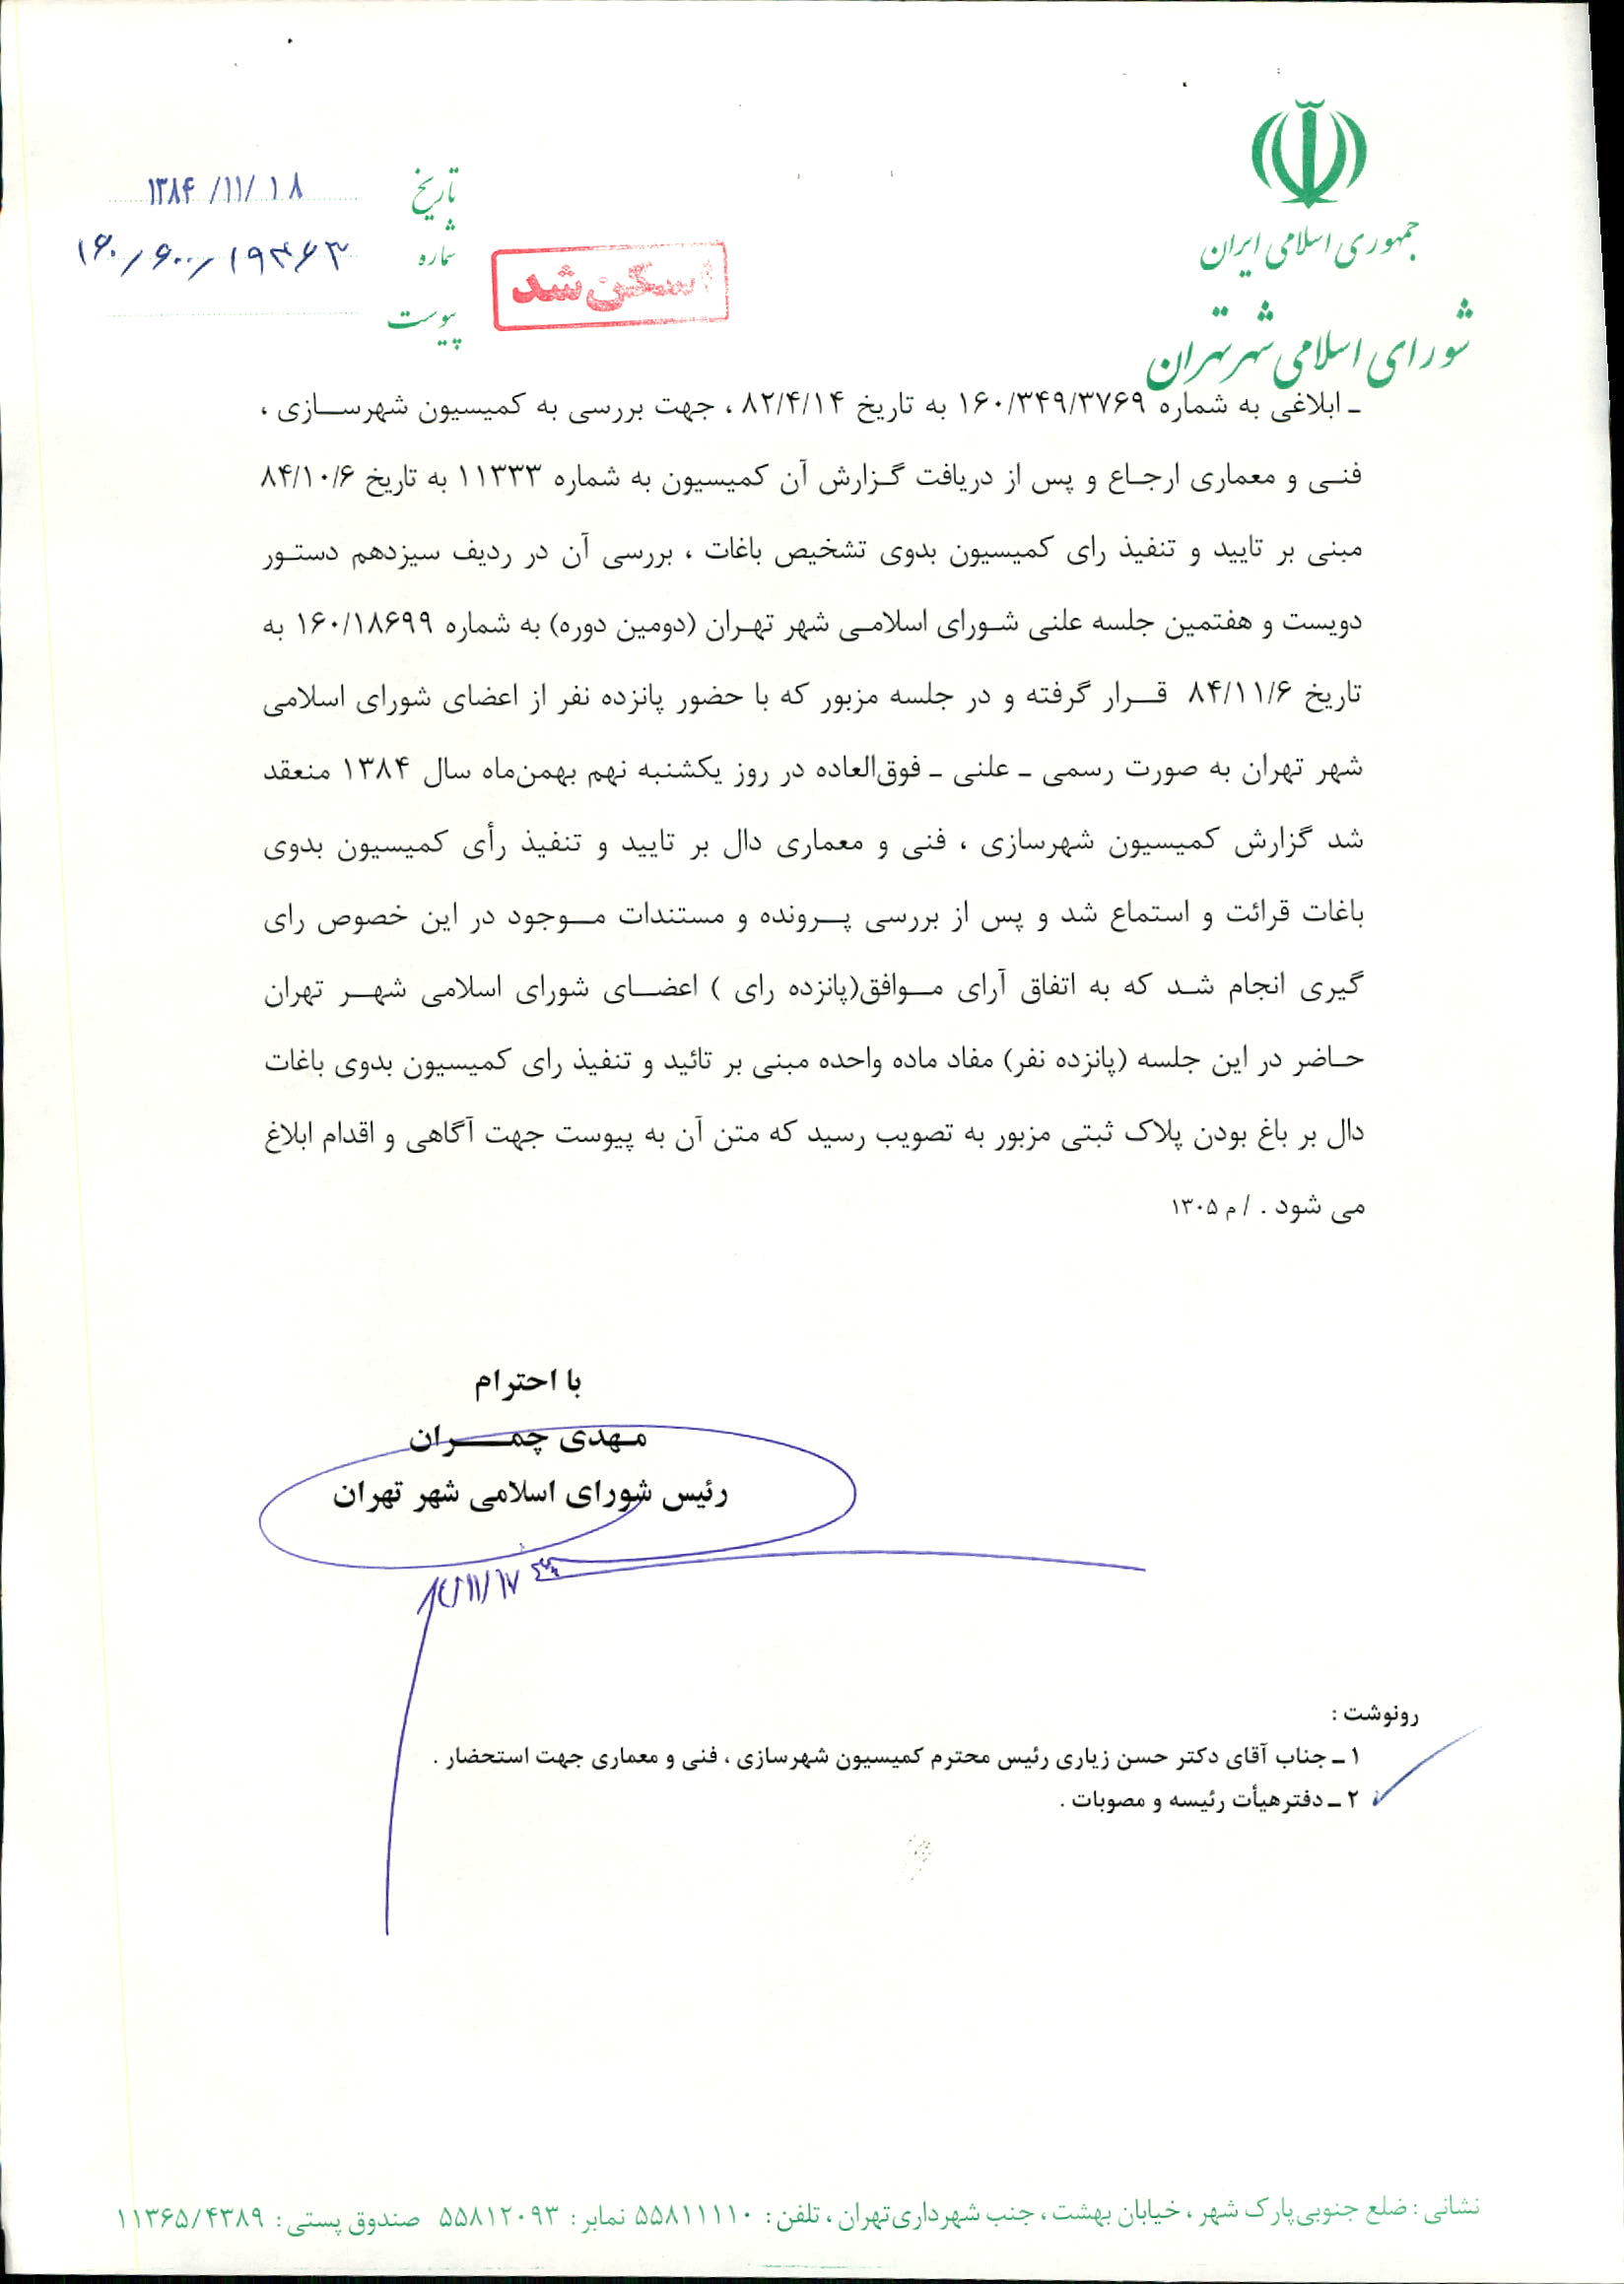 جمهوری اسلامی ایران
شورای اسلامی شهر تهران
تاریخ ۱۳۸۴/۱۱/۱۸
شماره ۱۶۰/۶۰۰/۱۹۴۶۳
پیوست
اسکن شد
ـ ابلاغی به شماره ۱۶۰/۳۴۹/۳۷۶۹ به تاریخ ۸۲/۴/۱۴ ، جهت بررسی به کمیسیون شهرسازی ،
فنی و معماری ارجاع و پس از دریافت گزارش آن کمیسیون به شماره ۱۱۳۳۳ به تاریخ ۸۴/۱۰/۶
مبنی بر تایید و تنفیذ رای کمیسیون بدوی تشخیص باغات ، بررسی آن در ردیف سیزدهم دستور
دویست و هفتمین جلسه علنی شورای اسلامی شهر تهران (دومین دوره) به شماره ۱۶۰/۱۸۶۹۹ به
تاریخ ۸۴/۱۱/۶ قرار گرفته و در جلسه مزبور که با حضور پانزده نفر از اعضای شورای اسلامی
شهر تهران به صورت رسمی ـ علنی ـ فوق‌العاده در روز یکشنبه نهم بهمن‌ماه سال ۱۳۸۴ منعقد
شد گزارش کمیسیون شهرسازی ، فنی و معماری دال بر تایید و تنفیذ رأی کمیسیون بدوی
باغات قرائت و استماع شد و پس از بررسی پرونده و مستندات موجود در این خصوص رای
گیری انجام شد که به اتفاق آرای موافق(پانزده رای ) اعضای شورای اسلامی شهر تهران
حاضر در این جلسه (پانزده نفر) مفاد ماده واحده مبنی بر تائید و تنفیذ رای کمیسیون بدوی باغات
دال بر باغ بودن پلاک ثبتی مزبور به تصویب رسید که متن آن به پیوست جهت آگاهی و اقدام ابلاغ
می شود . / م ۱۳۰۵
با احترام
مهدی چمران
رئیس شورای اسلامی شهر تهران
۸۴/۱۱/۱۷
رونوشت :
۱ ـ جناب آقای دکتر حسن زیاری رئیس محترم کمیسیون شهرسازی ، فنی و معماری جهت استحضار .
۲ ـ دفتر هیأت رئیسه و مصوبات .
نشانی : ضلع جنوبی پارک شهر ، خیابان بهشت ، جنب شهرداری تهران ، تلفن : ۵۵۸۱۱۱۱۰ نمابر : ۵۵۸۱۲۰۹۳ صندوق پستی : ۱۱۳۶۵/۴۳۸۹